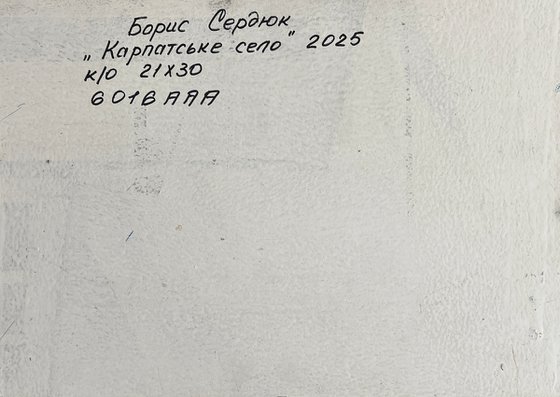 Борис Сердюк
„Карпатське село" 2025
к/о 21х30
601ВААА